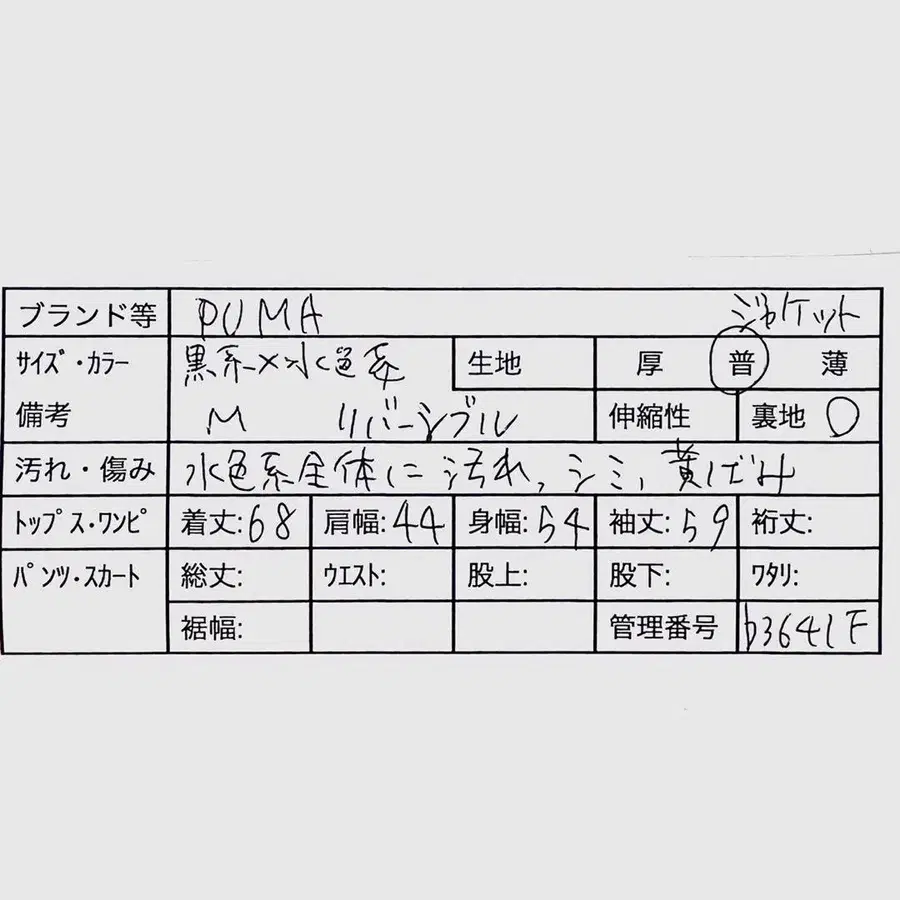 ブランド等 PUMA ジャケット
サイズ・カラー 黒系×水色系 生地 厚 普 薄
備考 M リバーシブル 伸縮性 裏地 ○
汚れ・傷み 水色系全体に汚れ、シミ、黄ばみ
トップス・ワンピ 着丈:68 肩幅:44 身幅:54 袖丈:59 裄丈:
パンツ・スカート 総丈: ウエスト: 股上: 股下: ワタリ:
裾幅: 管理番号 b3641F